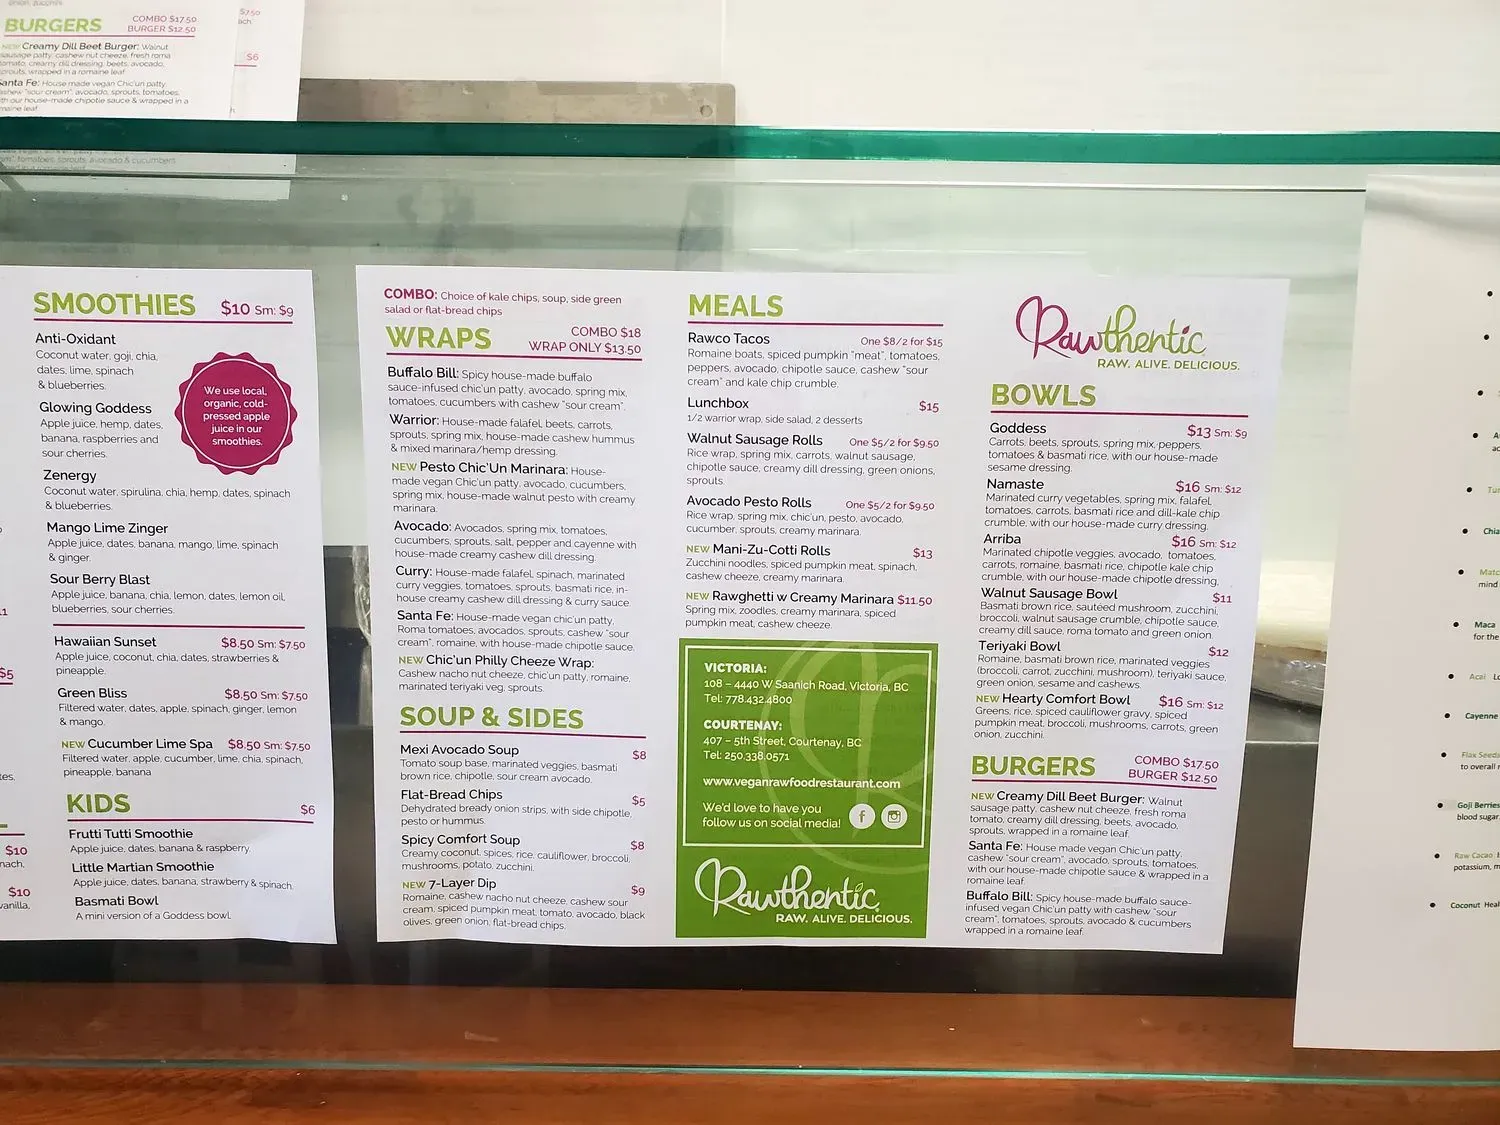 onion, zucchini
BURGERS
COMBO $17.50
BURGER $12.50
NEW Creamy Dill Beet Burger: Walnut
sausage patty, cashew nut cheeze, fresh roma
tomato, creamy dill dressing, beets, avocado,
sprouts, wrapped in a romaine leaf
Santa Fe: House made vegan Chic'un patty,
cashew "sour cream", avocado, sprouts, tomatoes,
with our house-made chipotle sauce & wrapped in a
romaine leaf
$7.50
$6
tomatoes, sprouts, avocado & cucumbers
SMOOTHIES
$10 Sm: $9
Anti-Oxidant
Coconut water, goji, chia,
dates, lime, spinach
& blueberries.
Glowing Goddess
Apple juice, hemp, dates,
banana, raspberries and
sour cherries.
We use local,
organic, cold-
pressed apple
juice in our
smoothies.
Zenergy
Coconut water, spirulina, chia, hemp, dates, spinach
& blueberries.
Mango Lime Zinger
Apple juice, dates, banana, mango, lime, spinach
& ginger.
Sour Berry Blast
Apple juice, banana, chia, lemon, dates, lemon oil,
blueberries, sour cherries.
Hawaiian Sunset $8.50 Sm: $7.50
Apple juice, coconut, chia, dates, strawberries &
pineapple.
Green Bliss $8.50 Sm: $7.50
Filtered water, dates, apple, spinach, ginger, lemon
& mango.
NEW Cucumber Lime Spa $8.50 Sm: $7.50
Filtered water, apple, cucumber, lime, chia, spinach,
pineapple, banana
KIDS $6
Frutti Tutti Smoothie
Apple juice, dates, banana & raspberry.
Little Martian Smoothie
Apple juice, dates, banana, strawberry & spinach.
Basmati Bowl
A mini version of a Goddess bowl.
$5
$10
$10
COMBO: Choice of kale chips, soup, side green
salad or flat-bread chips
WRAPS
COMBO $18
WRAP ONLY $13.50
Buffalo Bill: Spicy house-made buffalo
sauce-infused chic'un patty, avocado, spring mix,
tomatoes, cucumbers with cashew "sour cream".
Warrior: House-made falafel, beets, carrots,
sprouts, spring mix, house-made cashew hummus
& mixed marinara/hemp dressing.
NEW Pesto Chic'Un Marinara: House-
made vegan Chic'un patty, avocado, cucumbers,
spring mix, house-made walnut pesto with creamy
marinara.
Avocado: Avocados, spring mix, tomatoes,
cucumbers, sprouts, salt, pepper and cayenne with
house-made creamy cashew dill dressing.
Curry: House-made falafel, spinach, marinated
curry veggies, tomatoes, sprouts, basmati rice, in-
house creamy cashew dill dressing & curry sauce
Santa Fe: House-made vegan chic'un patty,
Roma tomatoes, avocados, sprouts, cashew "sour
cream", romaine, with house-made chipotle sauce.
NEW Chic'un Philly Cheeze Wrap:
Cashew nacho nut cheeze, chic'un patty, romaine,
marinated teriyaki veg, sprouts.
SOUP & SIDES
Mexi Avocado Soup $8
Tomato soup base, marinated veggies, basmati
brown rice, chipotle, sour cream avocado.
Flat-Bread Chips $5
Dehydrated bready onion strips, with side chipotle,
pesto or hummus.
Spicy Comfort Soup $8
Creamy coconut, spices, rice, cauliflower, broccoli,
mushrooms, potato, zucchini.
NEW 7-Layer Dip $9
Romaine, cashew nacho nut cheeze, cashew sour
cream, spiced pumpkin meat, tomato, avocado, black
olives, green onion, flat-bread chips.
MEALS
Rawco Tacos One $8/2 for $15
Romaine boats, spiced pumpkin "meat", tomatoes,
peppers, avocado, chipotle sauce, cashew "sour
cream" and kale chip crumble.
Lunchbox $15
1/2 warrior wrap, side salad, 2 desserts
Walnut Sausage Rolls One $5/2 for $9.50
Rice wrap, spring mix, carrots, walnut sausage,
chipotle sauce, creamy dill dressing, green onions,
sprouts.
Avocado Pesto Rolls One $5/2 for $9.50
Rice wrap, spring mix, chic'un, pesto, avocado,
cucumber, sprouts, creamy marinara.
NEW Mani-Zu-Cotti Rolls $13
Zucchini noodles, spiced pumpkin meat, spinach,
cashew cheeze, creamy marinara.
NEW Rawghetti w Creamy Marinara $11.50
Spring mix, zoodles, creamy marinara, spiced
pumpkin meat, cashew cheeze.
VICTORIA:
108 – 4440 W Saanich Road, Victoria, BC
Tel: 778.432.4800
COURTENAY:
407 – 5th Street, Courtenay, BC
Tel: 250.338.0571
www.veganrawfoodrestaurant.com
We'd love to have you
follow us on social media!
Rawthentic
RAW. ALIVE. DELICIOUS.
Rawthentic
RAW. ALIVE. DELICIOUS.
BOWLS
Goddess $13 Sm: $9
Carrots, beets, sprouts, spring mix, peppers,
tomatoes & basmati rice, with our house-made
sesame dressing.
Namaste $16 Sm: $12
Marinated curry vegetables, spring mix, falafel,
tomatoes, carrots, basmati rice and dill-kale chip
crumble, with our house-made curry dressing.
Arriba $16 Sm: $12
Marinated chipotle veggies, avocado, tomatoes,
carrots, romaine, basmati rice, chipotle kale chip
crumble, with our house-made chipotle dressing.
Walnut Sausage Bowl $11
Basmati brown rice, sautéed mushroom, zucchini,
broccoli, walnut sausage crumble, chipotle sauce,
creamy dill sauce, roma tomato and green onion.
Teriyaki Bowl $12
Romaine, basmati brown rice, marinated veggies
(broccoli, carrot, zucchini, mushroom), teriyaki sauce,
green onion, sesame and cashews.
NEW Hearty Comfort Bowl $16 Sm: $12
Greens, rice, spiced cauliflower gravy, spiced
pumpkin meat, broccoli, mushrooms, carrots, green
onion, zucchini.
BURGERS
COMBO $17.50
BURGER $12.50
NEW Creamy Dill Beet Burger: Walnut
sausage patty, cashew nut cheeze, fresh roma
tomato, creamy dill dressing, beets, avocado,
sprouts, wrapped in a romaine leaf.
Santa Fe: House made vegan Chic'un patty,
cashew "sour cream", avocado, sprouts, tomatoes,
with our house-made chipotle sauce & wrapped in a
romaine leaf.
Buffalo Bill: Spicy house-made buffalo sauce-
infused vegan Chic'un patty with cashew "sour
cream", tomatoes, sprouts, avocado & cucumbers
wrapped in a romaine leaf.
Chia
mind
Maca
for the
Acai
Cayenne
Flax Seeds
to overall
Goji Berries
blood sugar
Raw Cacao
potassium,
Coconut